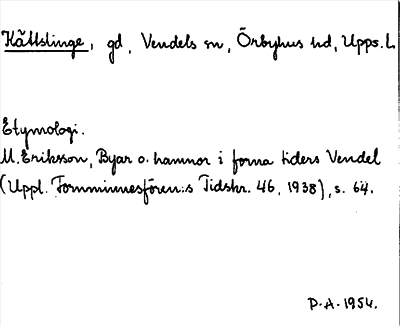 Kättslinge, gd, Vendels sn, Örbyhus hd, Upps. L.
Etymologi.
M. Eriksson, Byar o. hamnor i forna tiders Vendel
(Uppl. Fornminnesfören:s Tidskr. 46, 1938), s. 64.
P.A. 1954.